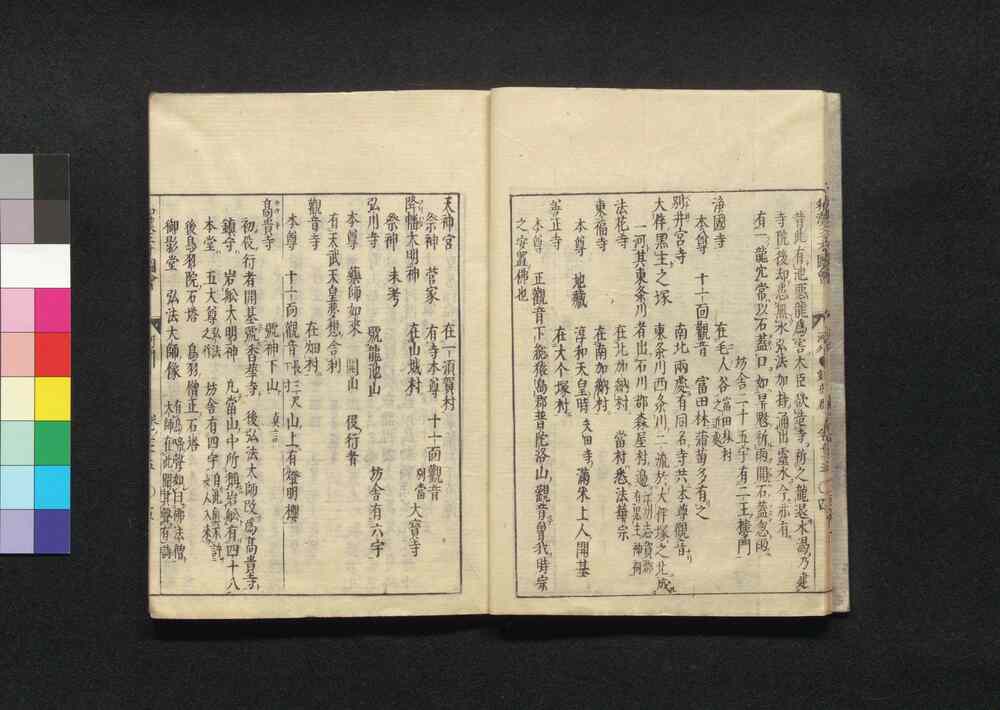 昔此有池悪龍爲害大臣欲造寺祈之龍退水涸乃建
寺院後却患無水弘法加持涌出靈水今亦有
有一龍穴常以石蓋口如旱魃祈雨開石蓋忽雨
坊舎二十五宇有二王樓門
浄國寺 在毛人谷富田林村之近處
本尊 十一面觀音 富田林蒲萄多有之
別井宮寺 南北兩處有同名寺共本尊觀音
大伴黒主之塚 東条川西条川二流於大伴塚之北成
一河其東条川者出石川郡森屋村邊
法花寺 在北加納村 當村悉法華宗
東福寺 在南加納村
本尊 地藏 淳和天皇時 滿米上人開基
善正寺 在大个塚村
本尊 正觀音下総猿島郡普陀洛山觀音曾我時宗
之安置佛也
天神宮 在一須賀村
祭神 菅家 有寺本尊 十一面觀音 別當 大寶寺
降幡大明神 在山城村
祭神 未考
弘川寺 號龍池山 坊舎有六宇
本尊 藥師如來 開山 役行者
有天武天皇夢想舎利
觀音寺 在畑村
本尊 十一面觀音 長三尺 山上有燈明櫻
高貴寺 號神下山 眞言
初役行者開基號香華寺後弘法大師改爲高貴寺
鎭守 岩舩大明神 凡當山中所類岩舩有四十八
本堂 五大尊 弘法之作 坊舎有四宇
後鳥羽院石塔 鳥羽僧正石塔
御影堂 弘法大師像 有鳥啼聲如曰佛法僧
大師在此聞其聲有詩